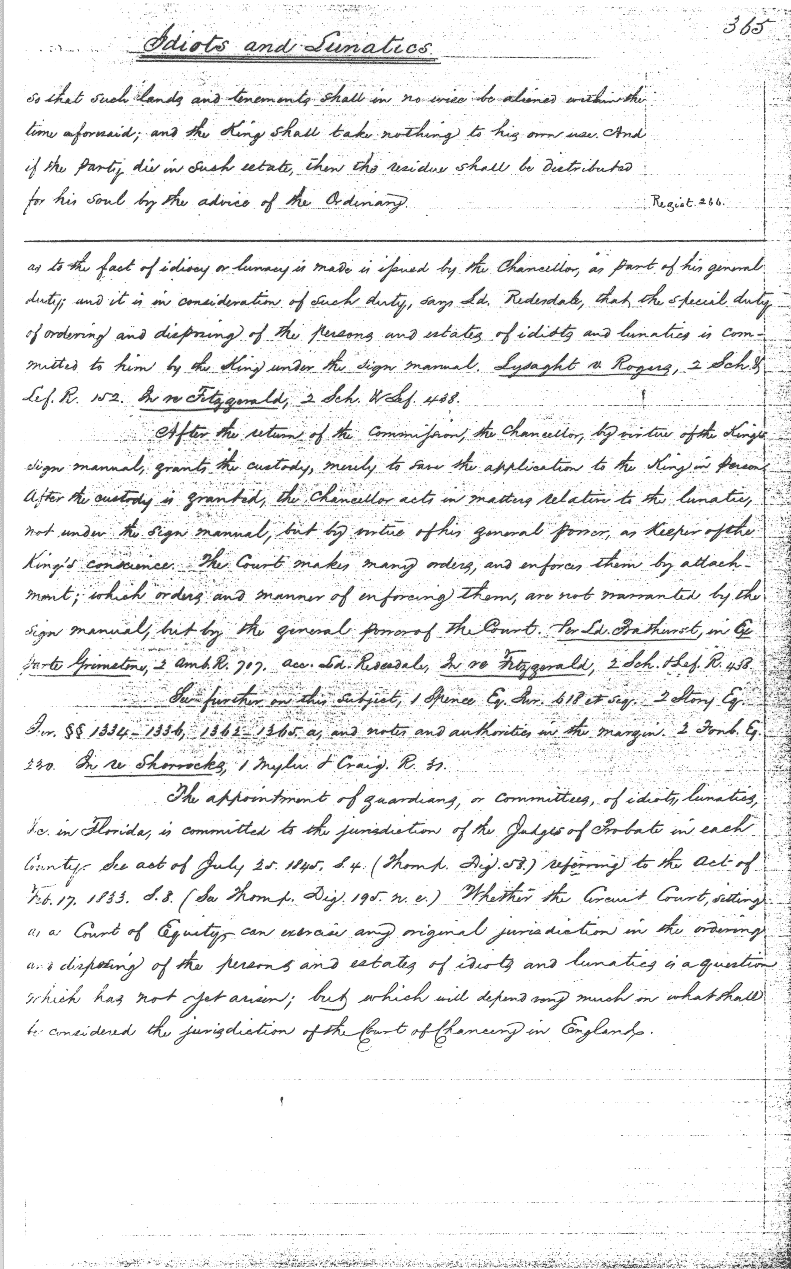 365
Idiots and Lunatics.
so that such lands and tenements shall in no wise be aliened within the
time aforesaid; and the King shall take nothing to his own use. And
if the Party die in such estate, then the residue shall be distributed
for his soul by the advice of the Ordinary.
Regist. 266.
as to the fact of idiocy or lunacy is made is issued by the Chancellor, as part of his general
duty; and it is in consideration of such duty, says Ld. Redesdale, that the special duty
of ordering and disposing of the persons and estates of idiots and lunatics is com-
mitted to him by the King under the sign manual. Lysaght v. Rogers, 2 Sch. &
Lef. R. 152. In re Fitzgerald, 2 Sch. & Lef. 438.
After the return of the commission, the Chancellor, by virtue of the King's
sign manual, grants the custody, merely to save the application to the King in person.
After the custody is granted, the Chancellor acts in matters relative to the lunatic,
not under the sign manual, but by virtue of his general power, as Keeper of the
King's conscience. The Court makes many orders, and enforces them by attach-
ment; which orders and manner of enforcing them, are not warranted by the
sign manual, but by the general power of the Court. Per Ld. Bathurst, in Ex
parte Grimstone, 2 Amb. R. 707. acc. Ld. Redesdale, In re Fitzgerald, 2 Sch. & Lef. R. 438
See further on this subject, 1 Spence Eq. Jur. 618 et seq. 2 Story Eq.
Jur. §§ 1334–1336, 1362–1365. a, and notes and authorities in the margin. 2 Fonb. Eq.
230. In re Sherrocks, 1 Mylne & Craig. R. 31.
The appointment of guardians, or committees, of idiots, lunatics,
&c. in Florida, is committed to the jurisdiction of the Judges of Probate in each
County. See act of July 25. 1845. S. 4. (Thomp. Dig. 58.) referring to the Act of
Feb. 17. 1833. S. 8. (See Thomp. Dig. 195. n. c.) Whether the Circuit Court, sitting
as a Court of Equity, can exercise any original jurisdiction in the ordering
and disposing of the persons and estates of idiots and lunatics is a question
which has not yet arisen; but which will depend very much on what shall
be considered the jurisdiction of the Court of Chancery in England.